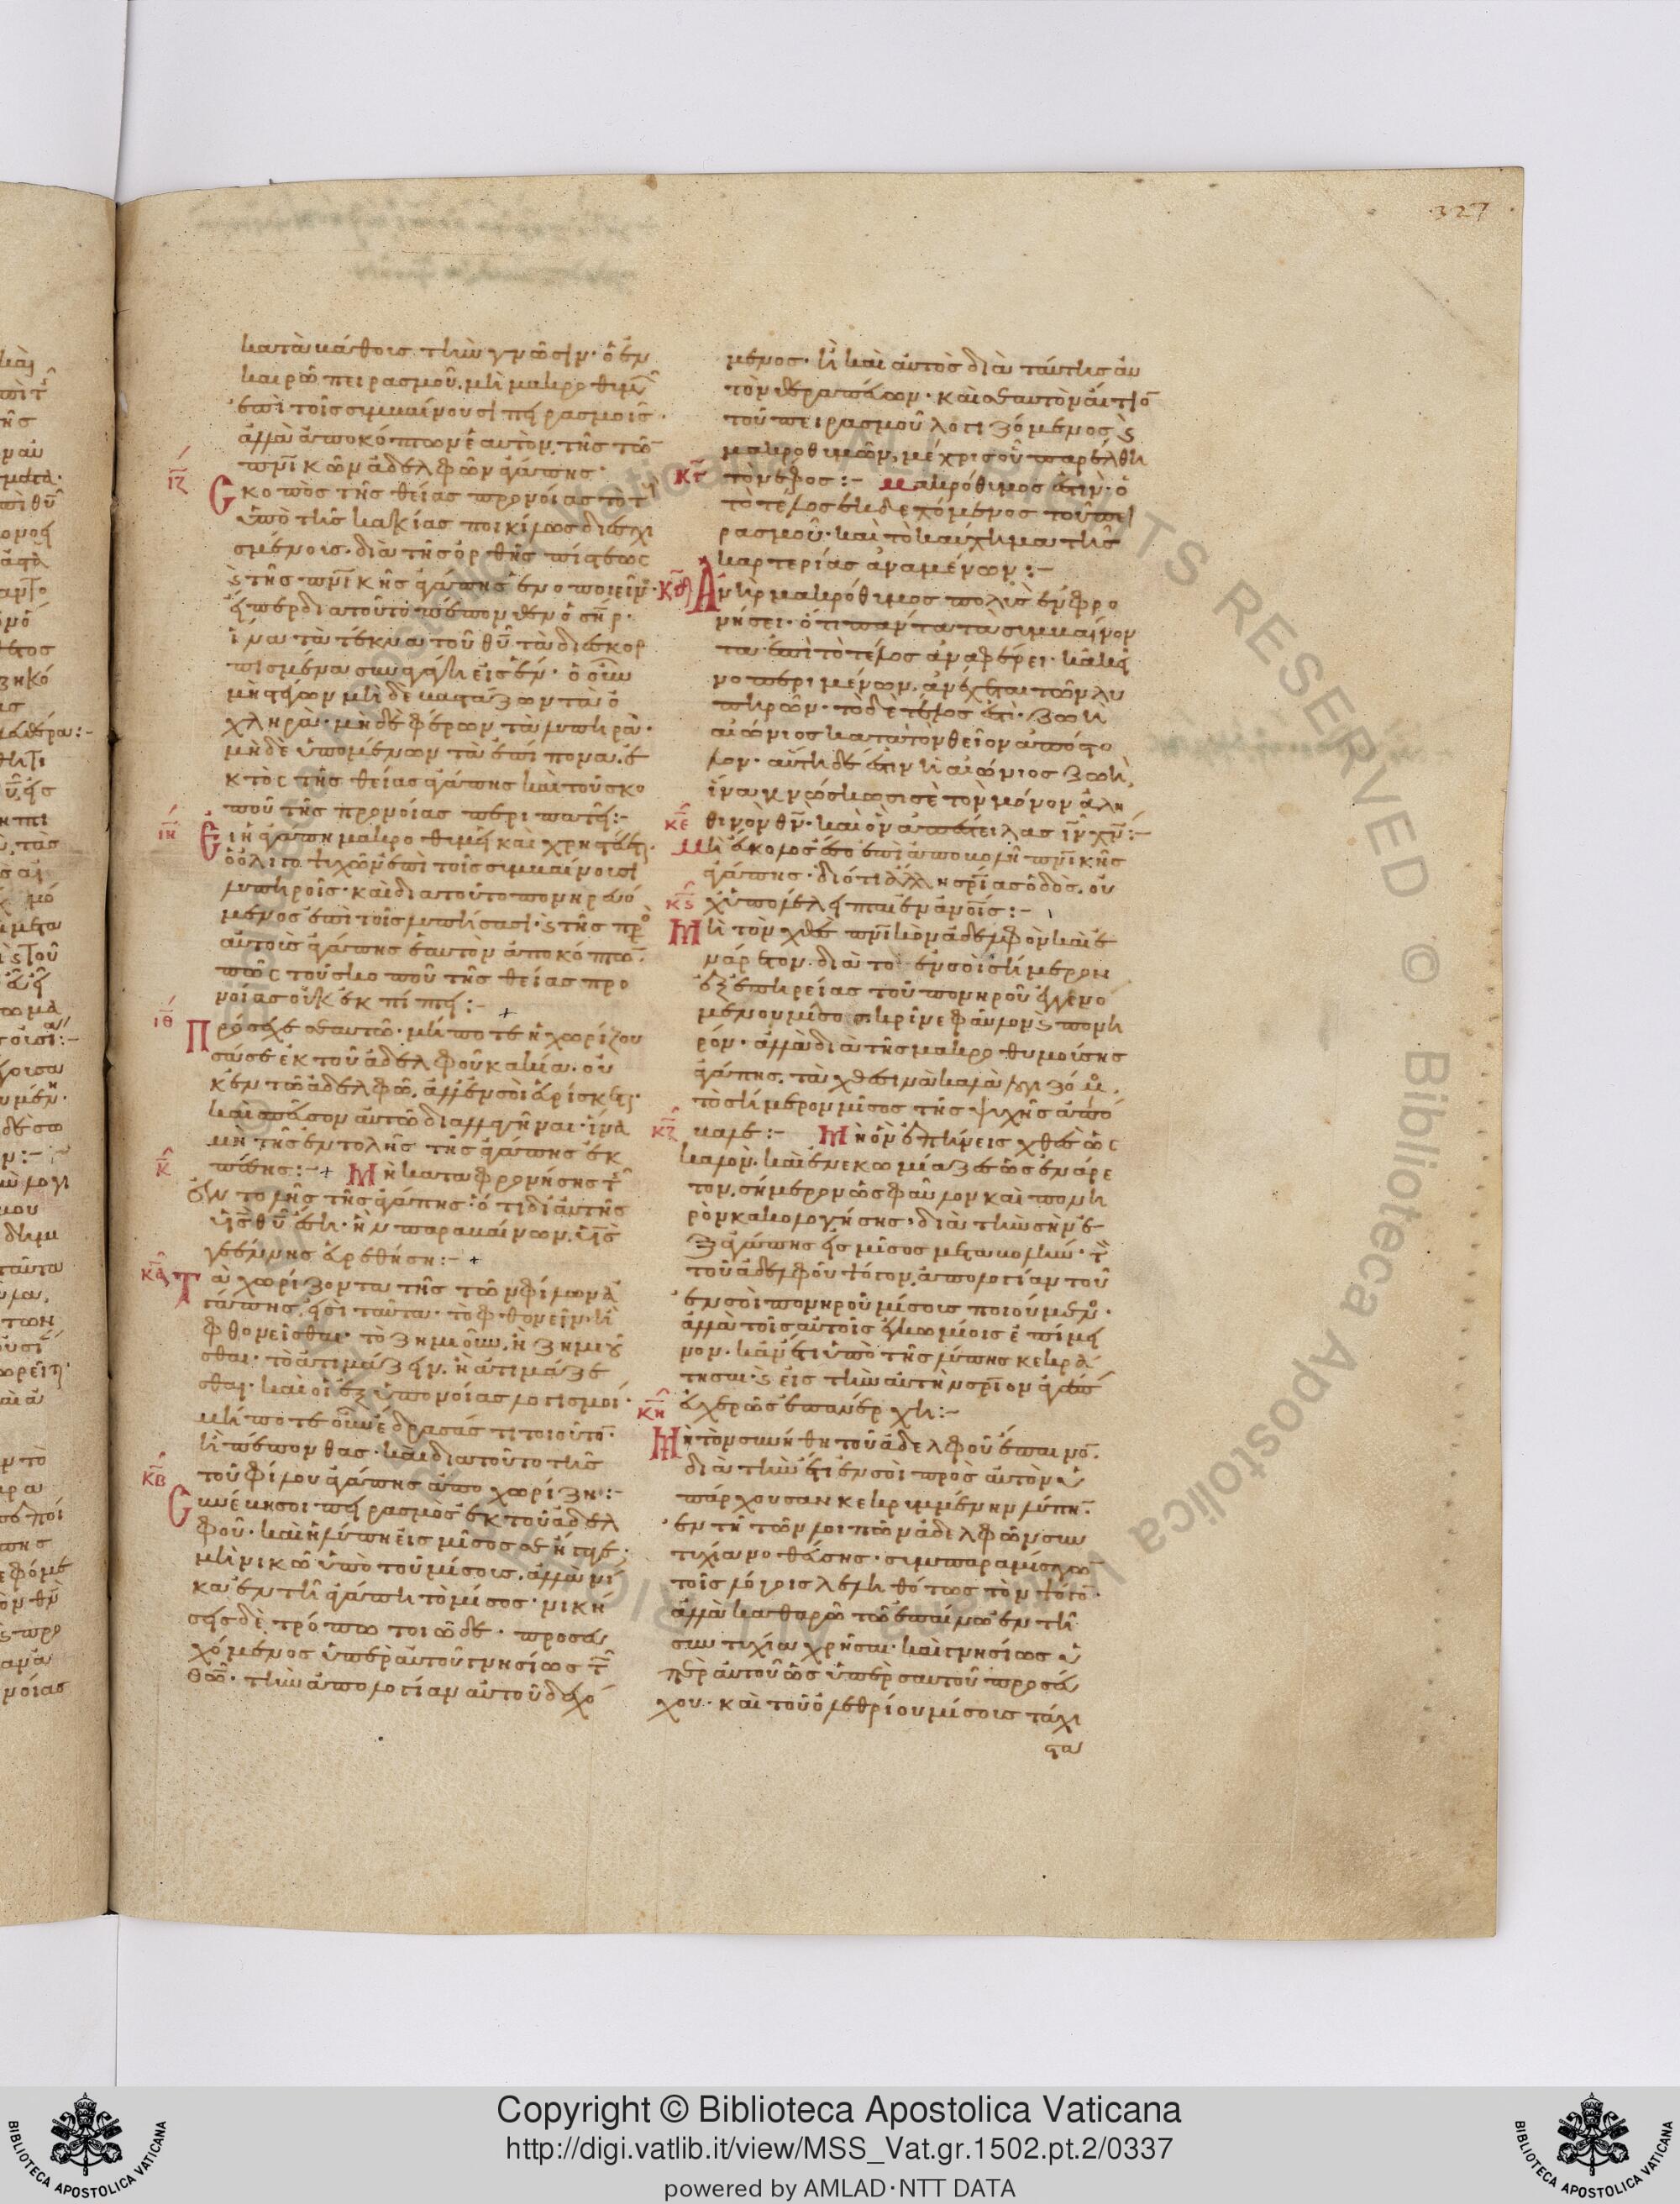 327
κατὰ βάθους τὴν γνῶσιν· ὁ ἐν
καιρῶ πειρασμοῦ, μὴ μακροθυμῶ
ἐπὶ τοῖς συμβαίνουσι πειρασμοῖς·
ἀλλὰ ἀποκόπτων ἑαυτὸν τῆς τῶ
πνικῶν ἀδελφῶν ἀγάπης·
ιζ Σκοπὸς τῆς θείας προνοίας τὸ τοὺς
ὑπὸ τῆς κακίας ποικίλως διεσχι
σμένους, διὰ τῆς ὀρθῆς πίστεως
καὶ τῆς πνικῆς ἀγάπης ἑνοποιεῖν·
εἴπερ διατοῦτο πέπονθεν ὁ σηρ·
ἵνα τὰ τέκνα τοῦ θυ τὰ διεσκορ
πισμένα συναγάγη εἰς ἕν· ὁ οὖν
μὴ στέγων μὴ δὲ βαστάζων τὰ ὀ
χληρὰ· μηδὲ φέρων τὰ λυπηρὰ·
μηδὲ ὑπομένων τὰ ἐπίπονα, ἐ
κτὸς τῆς θείας ἀγάπης καὶ τοῦ σκο
ποῦ τῆς προνοίας περιπατεῖ:-
ιη Εἰ ἡ ἀγάπη μακροθυμεῖ καὶ χρηστεύεται·
ὁ ὀλιγοψυχῶν ἐπὶ τοῖς συμβαίνουσι
λυπηροῖς· καὶ διατοῦτο πονηρευό
μενος ἐπὶ τοῖς λυπήσασι· καὶ τῆς πρὸ
αὐτοὺς ἀγάπης ἑαυτὸν ἀποκόπτω·
πῶς τοῦ σκοποῦ τῆς θείας προ
νοίας οὐκ ἐκπίπτει:-
ιθ Πρόσεχε σεαυτῶ· μήποτε ἡ χωρίζου
σά σε ἐκ τοῦ ἀδελφοῦ κακία, οὐ
κ ἐν τῶ ἀδελφῶ, ἀλλ ἐν σοὶ εὑρίσκεται·
καὶ σπεῦσον αὐτῶ διαλλαγῆναι· ἵνα
μὴ τῆς ἐντολῆς τῆς ἀγάπης ἐκ
κ πέσης:- Μὴ καταφρονήσης τῆ
ἐντολῆς τῆς ἀγάπης· ὅτι δι αὐτῆς
υἱὸς θυ ἔση· ἣν παραβαίνων, υἱὸς
γεέννης εὑρεθήση:-
κα Τὰ χωρίζοντα τῆς τῶν φίλων ἀ
γάπης, εἰσὶ ταῦτα· τὸ φθονεῖν· ἢ
φθονεῖσθαι· τὸ ζημιοῦν, ἢ ζημιοῦ
σθαι· τὸ ἀτιμάζειν, ἢ ἀτιμάζε
σθαι· καὶ οἱ ἐξ ὑπονοίας λογισμοί·
μήποτε οὖν ἔδρασάς τι τοιοῦτον·
ἢ πέπονθας· καὶ διατοῦτο τῆς
τοῦ φίλου ἀγάπης ἀποχωρίζη:-
κβ Συνέβη σοι πειρασμὸς ἐκ τοῦ ἀδελ
φοῦ· καὶ ἡ λύπη εἰς μῖσος σε ἤγαγε·
μὴ νικῶ ὑπὸ τοῦ μίσους, ἀλλὰ νί
κα ἐν τῆ ἀγάπη τὸ μῖσος· νική
σεις δὲ τρόπω τοιῶδε· προσευ
χόμενος ὑπὲρ αὐτοῦ γνησίως τῶ
θῶ· τὴν ἀπολογίαν αὐτοῦ δεχό
μενος· ἢ καὶ αὐτὸς διὰ ταύτης αὐ
τὸν θεραπεύων· καὶ σεαυτὸν αἴτιο
τοῦ πειρασμοῦ λογιζόμενος καὶ
μακροθυμῶν, μέχρις οὗ παρέλθη
κγ τὸ νέφος:- Μακρόθυμος ἐστὶν· ὁ
τὸ τέλος ἐκδεχόμενος τοῦ πει
ρασμοῦ· καὶ τὸ καύχημα τῆς
καρτερίας ἀναμένων:-
κδ Ἀνὴρ μακρόθυμος πολὺς ἐν φρο
νήσει· ὅτι πάντα τὰ συμβαίνον
τα ἐπὶ τὸ τέλος ἀναφέρει· κακεῖ
νο περιμένων, ἀνέχεται τῶν λυ
πηρῶν· τὸ δὲ τέλος ἐστὶ· ζωὴ
αἰώνιος κατὰ τὸν θεῖον ἀπόστο
λον· αὕτη δέ ἐστιν ἡ αἰώνιος ζωὴ,
ἵνα γινώσκωσι σὲ τὸν μόνον ἀλη
θινὸν θν· καὶ ὃν ἀπέστειλας ιν χν:-
κε Μὴ εὔκολος ἔσο ἐπὶ ἀποβολῆ πνικῆς
ἀγάπης· διότι ἄλλη σρίας ὁδὸς, οὐ
χ ὑπολέλειπται ἐν ἀνοις:-
κς Μὴ τὸν χθὲς πνικὸν ἀδελφὸν καὶ ἐ
νάρετον, διὰ τὸ ἐν σοὶ σήμερον
ἐξ ἐπηρείας τοῦ πονηροῦ ἐγγενό
μενον μῖσος κρῖνε φαῦλον καὶ πονη
ρόν· ἀλλὰ διὰ τῆς μακροθυμούσης
ἀγάπης, τὰ χθεσινὰ καλὰ λογιζόμενος,
τὸ σήμερον μῖσος τῆς ψυχῆς ἀπό
κζ βαλε:- Μὴ ὃν ἐπήνεις χθὲς ὡς
καλὸν, καὶ ἐνεκωμίαζες ὡς ἐνάρε
τον, σήμερον ὡς φαῦλον καὶ πονη
ρὸν κακολογήσης· διὰ τὴν σὴν ἐ
ξ ἀγάπης εἰς μῖσος μεταβολὴν· τὸ
τοῦ ἀδελφοῦ ψόγον, ἀπολογίαν τοῦ
ἐν σοὶ πονηροῦ μίσους ποιούμενος·
ἀλλὰ τοῖς αὐτοῖς ἐγκωμίοις ἐπίμει
νον· κἂν ἔτι ὑπὸ τῆς λύπης κεκρά
τησαι· καὶ εἰς τὴν αὐτὴν σριον ἀγάπη
εὐχερῶς ἐπανέρχη:-
κη Μὴ τὸν συνήθη τοῦ ἀδελφοῦ ἔπαινον
διὰ τὴν ἔτι ἐν σοὶ πρὸς αὐτὸν ὑ
πάρχουσαν κεκρυμμένην λύπην
ἐν τῆ τῶν λοιπῶν ἀδελφῶν συν
τυχία νοθεύσης· συμπαραμίσγων
τοῖς λόγοις λεληθότως τὸν ψόγον·
ἀλλὰ καθαρῶ τῶ ἐπαίνω ἐν τῆ
συντυχία χρῆσαι· καὶ γνησίως ὑ
πὲρ αὐτοῦ ὡς ὑπὲρ σαυτοῦ προσεύ
χου· καὶ τοῦ ὀλεθρίου μίσους τάχι
στα
Copyright © Biblioteca Apostolica Vaticana
http://digi.vatlib.it/view/MSS_Vat.gr.1502.pt.2/0337
powered by AMLAD·NTT DATA
BIBLIOTECA APOSTOLICA VATICANA
BIBLIOTECA APOSTOLICA VATICANA